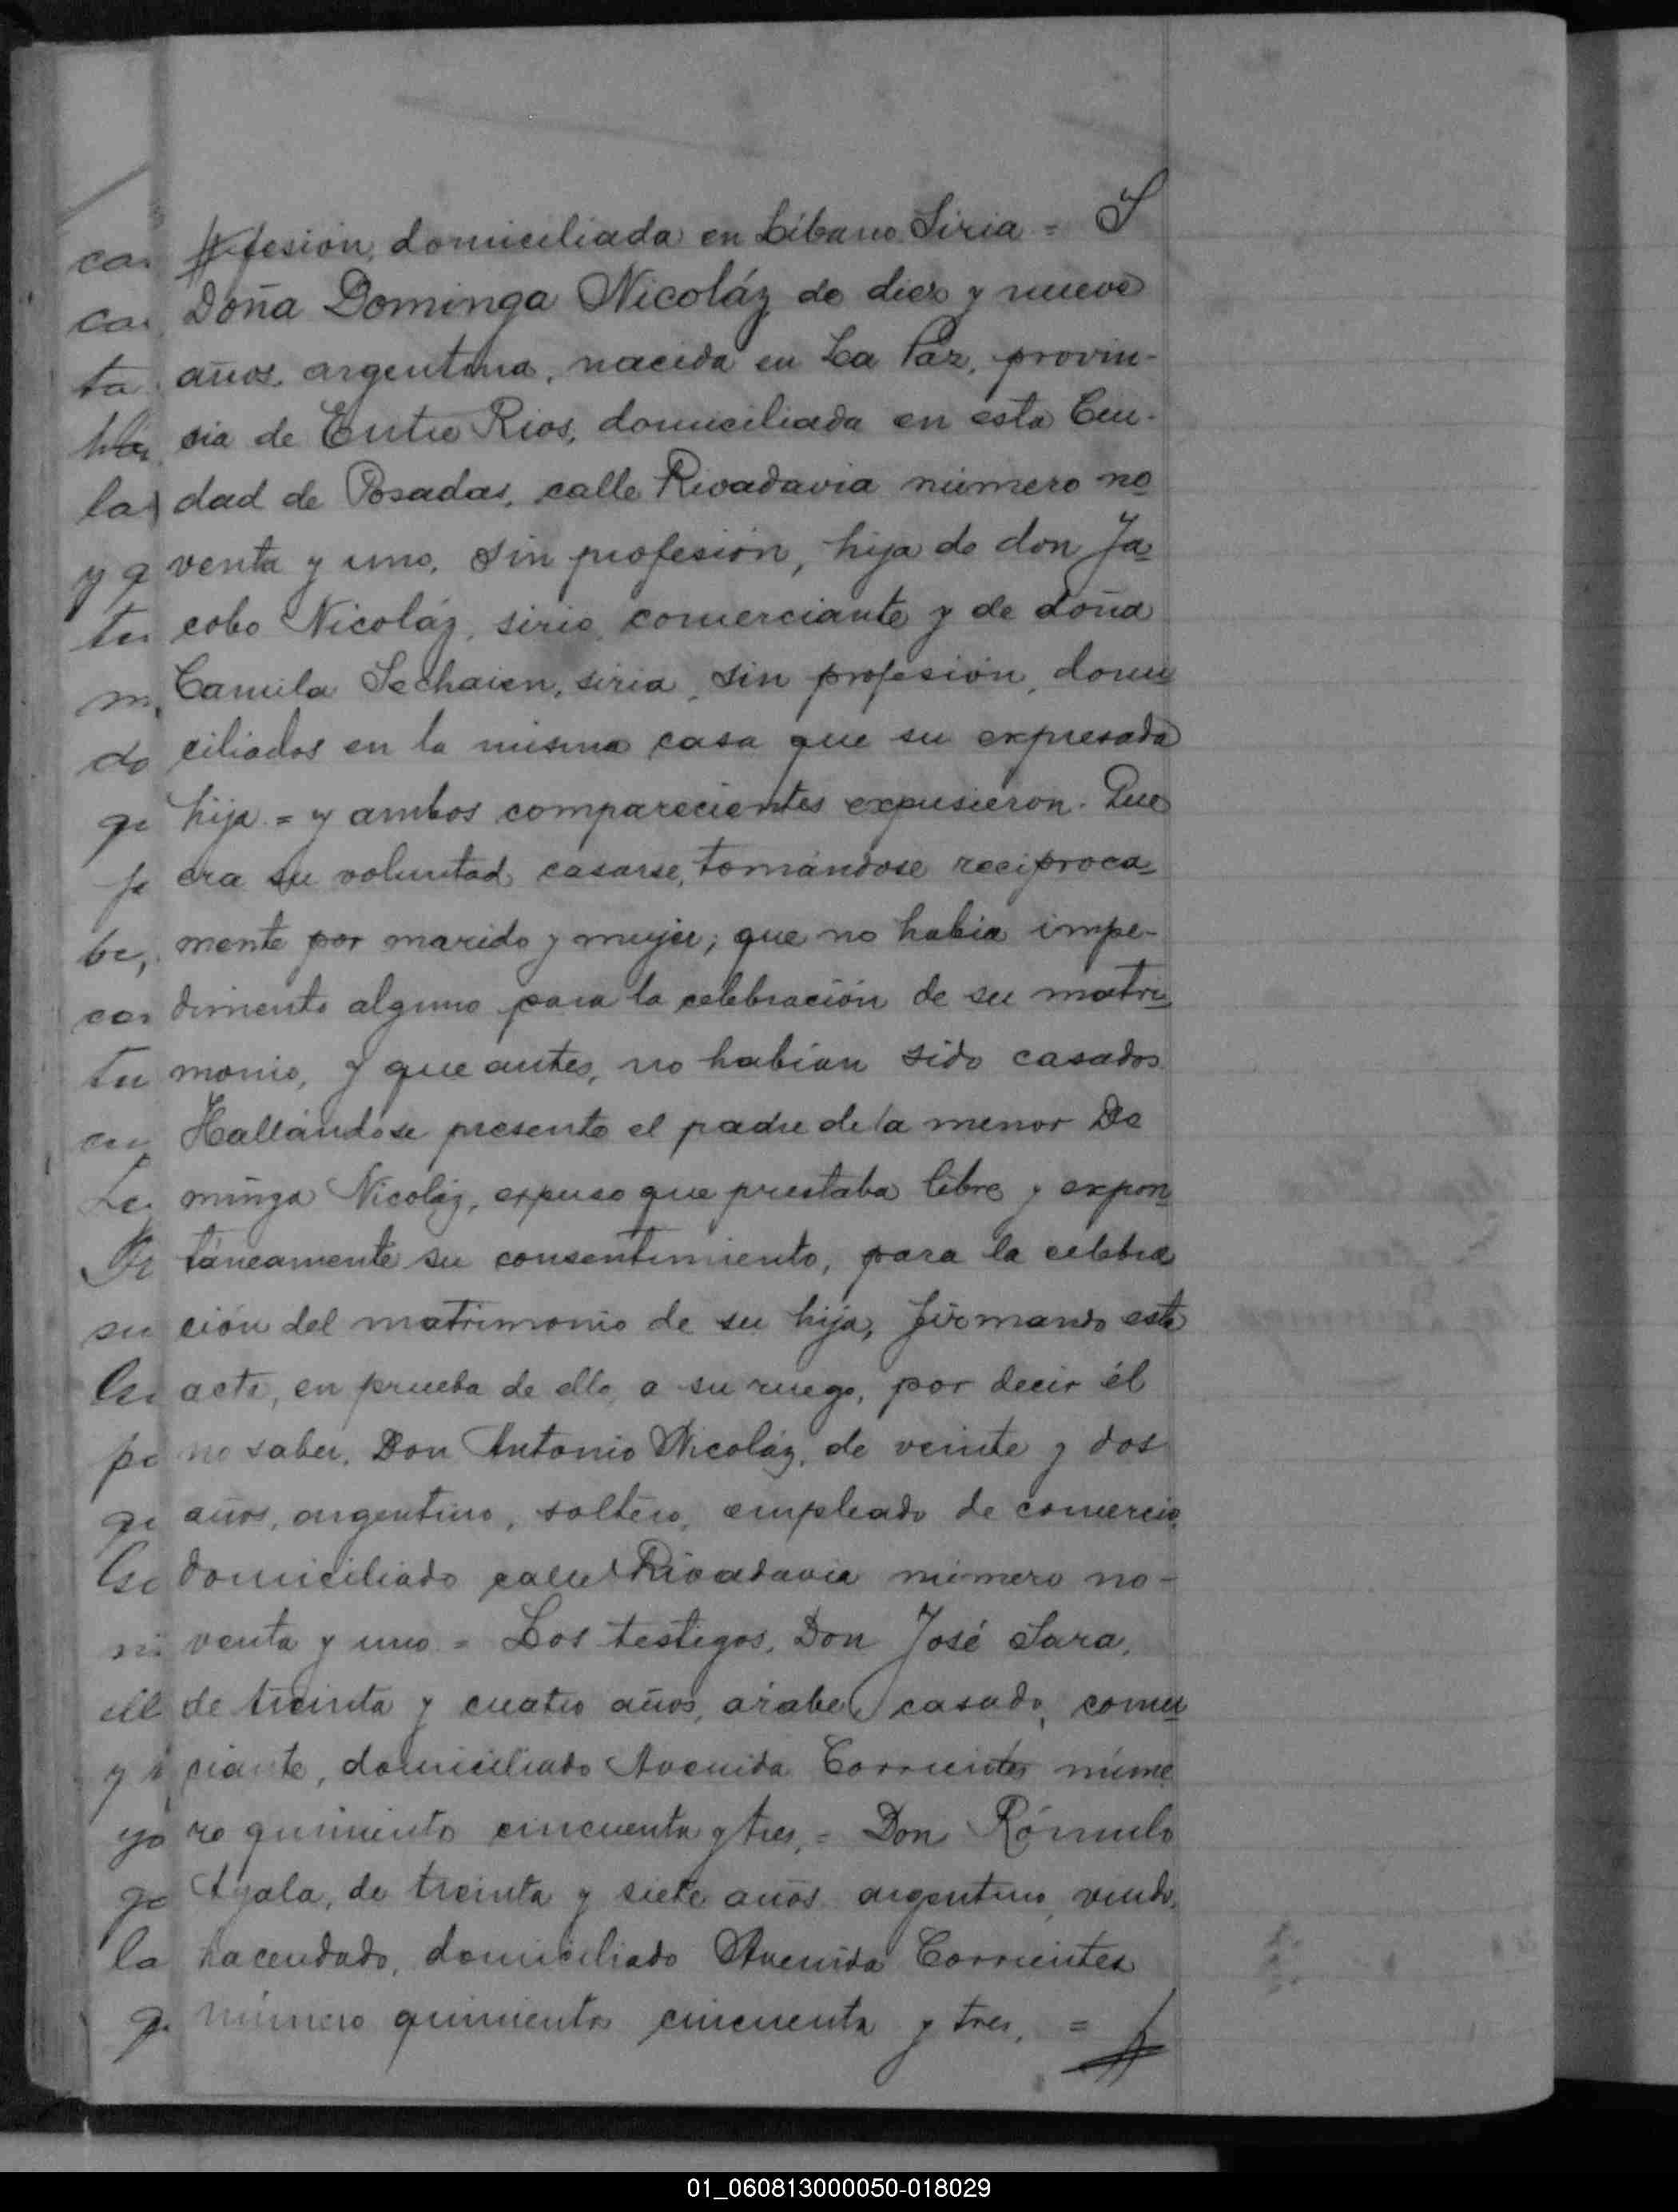 fesión, domiciliada en Líbano Siria = Y
Doña Dominga Nicoláz de diez y nueve
años, argentina, nacida en La Paz, provin-
cia de Entre Rios, domiciliada en esta Ciu-
dad de Posadas, calle Rivadavia número no
venta y uno, sin profesión, hija de don Ja
cobo Nicoláz, sirio, comerciante y de doña
Camila Sechaien, siria, sin profesión, domi
ciliados en la misma casa que su expresada
hija = y ambos comparecientes expusieron. Que
era su voluntad casarse, tomándose reciproca
mente por marido y mujer; que no habia impe-
dimento alguno para la celebración de su matri
monio, y que antes, no habian sido casados.
Hallándose presente el padre de la menor Do
minga Nicoláz, expuso que prestaba libre y expon
táneamente su consentimiento, para la celebra
ción del matrimonio de su hija, firmando este
acto, en prueba de ello, a su ruego, por decir él
no saber, Don Antonio Nicoláz, de veinte y dos
años, argentino, soltero, empleado de comercio,
domiciliado calle Rivadavia número no-
venta y uno = Los testigos, Don José Sara,
de treinta y cuatro años, árabe, casado, comer
ciante, domiciliado Avenida Corrientes núme
ro quinientos cincuenta y tres, = Don Rómulo
Ayala, de treinta y siete años argentino, viudo,
hacendado, domiciliado Avenida Corrientes
número quinientos cincuenta y tres, =
01_060813000050-018029